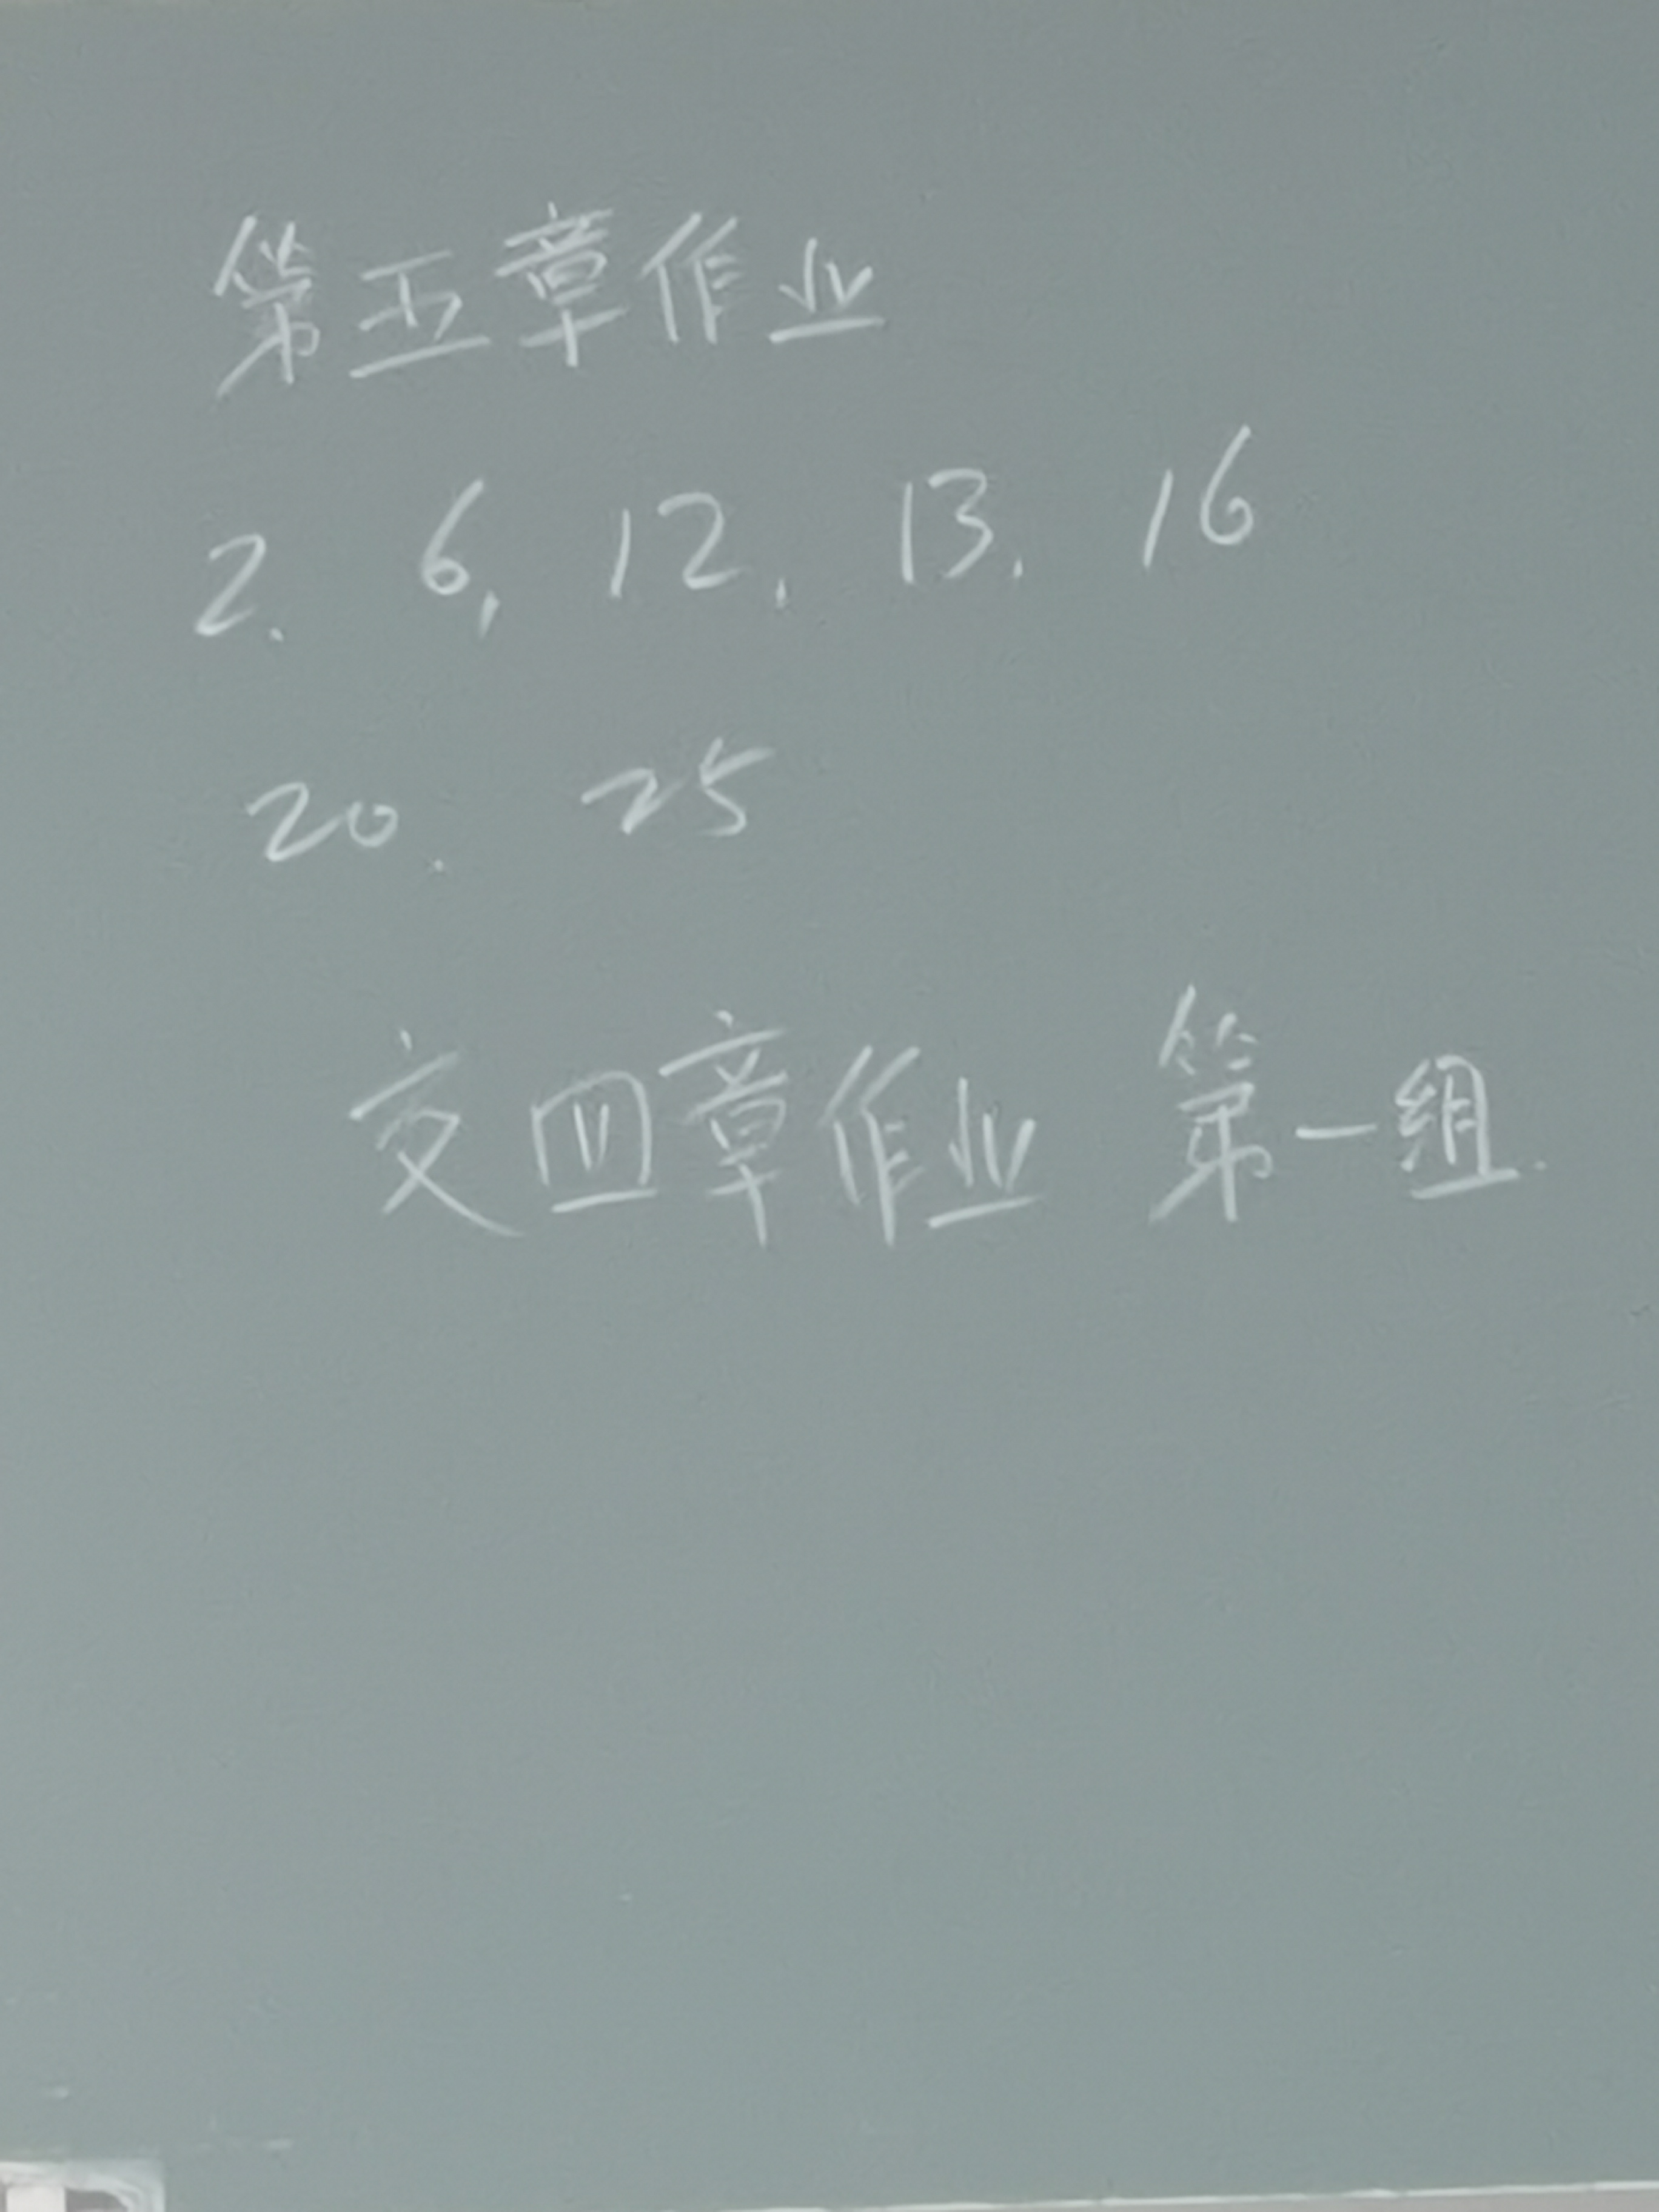 第五章作业
2. 6, 12, 13, 16
20. 25
交四章作业 第一组.